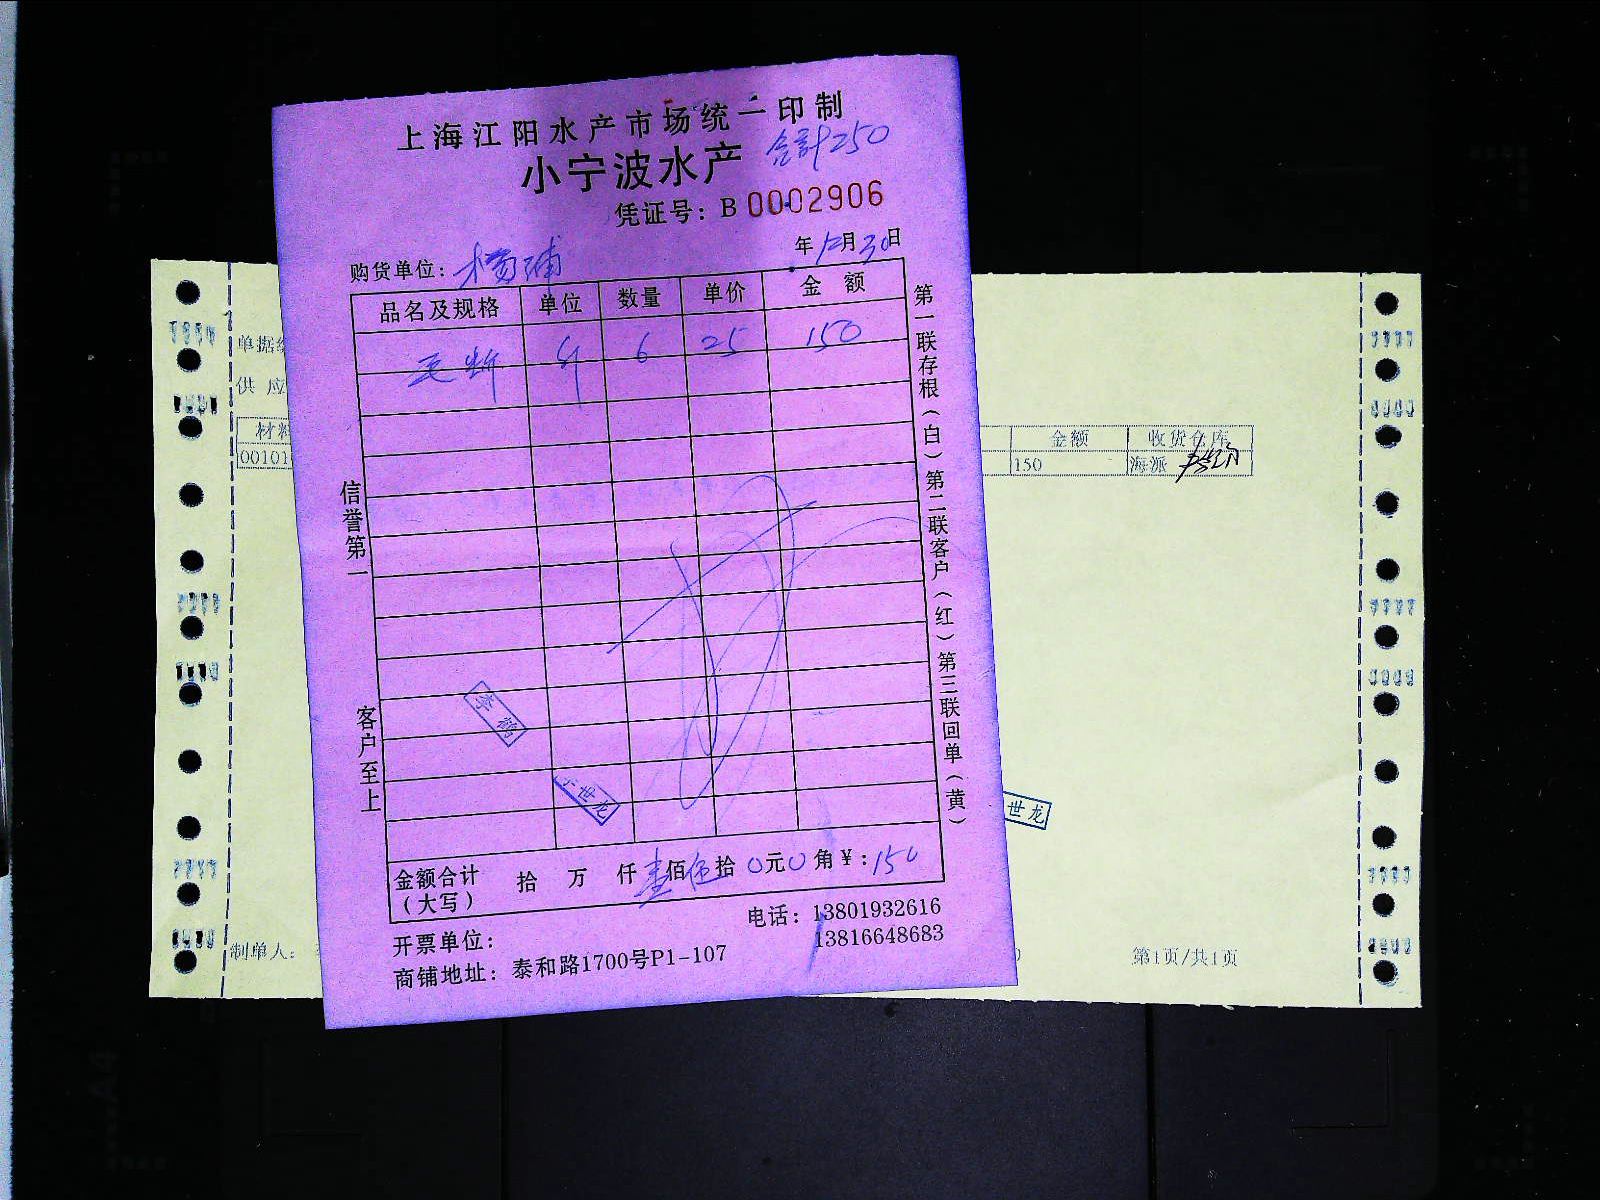 上海江阳水产市场统一印制
小宁波水产 合計250
凭证号：B 0002906
年12月30日
购货单位：杨浦
品名及规格 单位 数量 单价 金额
斤 6 25 150
第一联存根（白）第二联客户（红）第三联回单（黄）
信誉第一
客户至上
李鹤
世龙
金额合计（大写） 拾 万 仟 壹佰伍拾0元0角¥：150
开票单位：
电话：13801932616
13816648683
商铺地址：泰和路1700号P1-107
单据
供应
材料
00101
金额 收货仓库
150 海派
世龙
制单人：
第1页/共1页